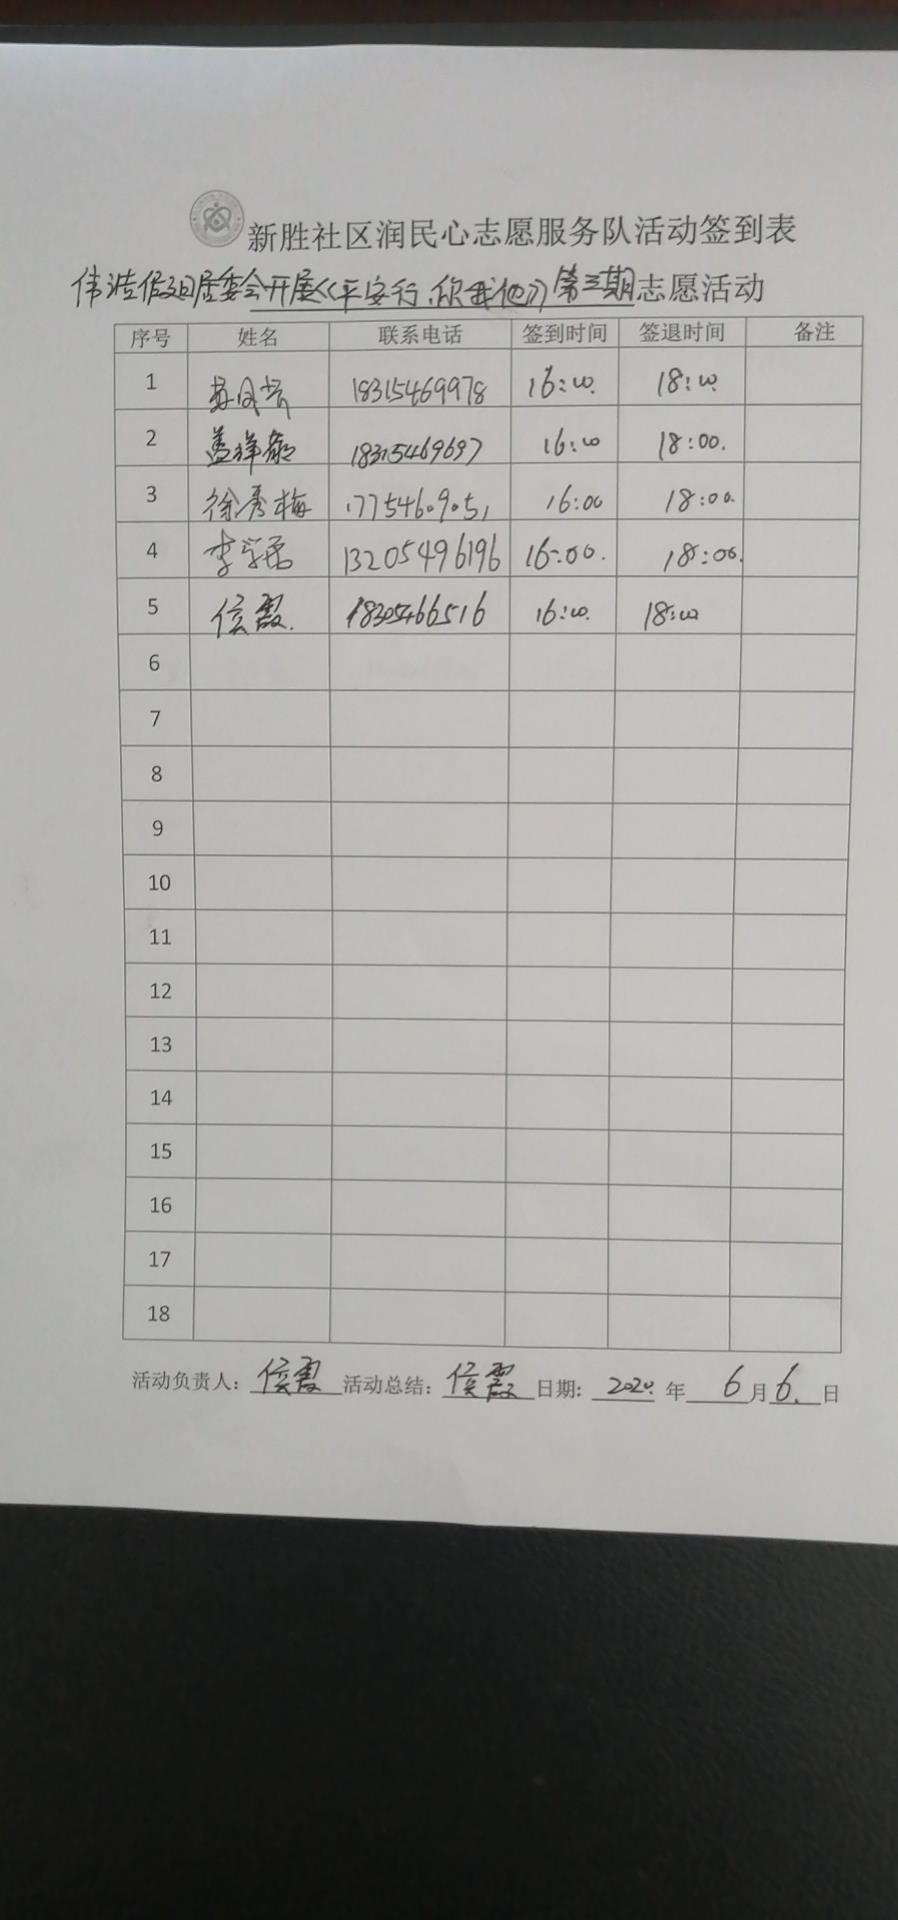 新胜社区润民心志愿服务队活动签到表
伟浩假日居委会开展《平安行，你我他》第三期志愿活动
序号 姓名 联系电话 签到时间 签退时间 备注
1 18315469978 16:00 18:00
2 盖祥 18315469697 16:00 18:00.
3 徐秀梅 17754609051 16:00 18:00.
4 李 13205496196 16:00. 18:00.
5 侯霞. 18305466516 16:00. 18:00
6
7
8
9
10
11
12
13
14
15
16
17
18
活动负责人：侯霞 活动总结：侯霞 日期：2020.年 6月6.日